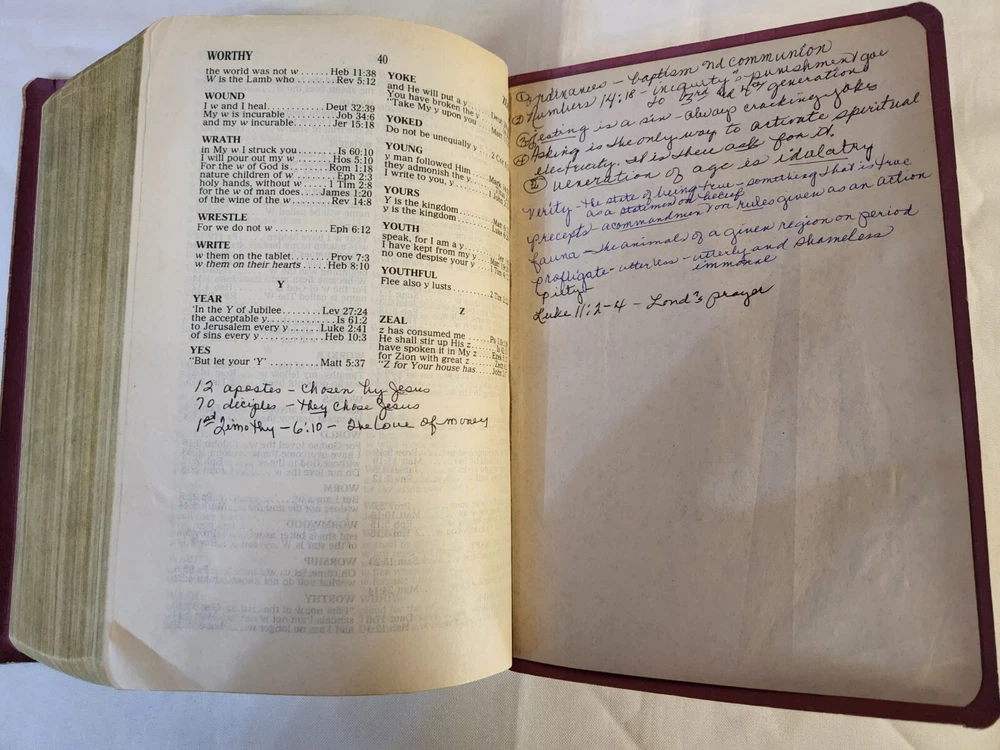 WORTHY
40
the world was not w ...... Heb 11:38
W is the Lamb who .. Rev 5:12
WOUND
I w and I heal ........ Deut 32:39
My w is incurable ...... Job 34:6
and my w incurable. ... Jer 15:18
WRATH
in My w I struck you .... Is 60:10
I will pour out my w .... Hos 5:10
For the w of God is .... Rom 1:18
nature children of w ..... Eph 2:3
holy hands, without w . 1 Tim 2:8
for the w of man does .. James 1:20
of the wine of the w .. Rev 14:8
WRESTLE
For we do not w ........ Eph 6:12
WRITE
w them on the tablet .... Prov 7:3
w them on their hearts .... Heb 8:10
Y
YEAR
'In the Y of Jubilee ...... Lev 27:24
the acceptable y .......... Is 61:2
to Jerusalem every y ..... Luke 2:41
of sins every y .......... Heb 10:3
YES
"But let your 'Y' .......... Matt 5:37
YOKE
and He will put a y
You have broken the y
"Take My y upon you
YOKED
Do not be unequally y
YOUNG
y man followed Him
they admonish the y
I write to you, y
YOURS
Y is the kingdom
y is the kingdom
YOUTH
speak, for I am a y
I have kept from my y
no one despise your y
YOUTHFUL
Flee also y lusts
Z
ZEAL
z has consumed me
He shall stir up His z
have spoken it in My z
for Zion with great z
"Z for Your house has
12 apostes - Chosen by Jesus
70 diciples - they Chose Jesus
1st Timothy - 6:10 - The Love of money
① Ordinances - baptism nd communion
② Numbers 14:18 - inequity's - punishment goe
to 3rd nd 4th generation
③ Jesting is a sin - always cracking jokes
④ Asking is the only way to activate spiritual
electricity. It is there ask for it.
⑤ Veneration of age is idalatry
Verity - the state of being true - something that is true
as a statemin on beleif
precepts - a commandmen on rules given as an action
fauna - the animals of a given region on period
profligate - utterless - utterly and shameless
immoral
piety
Luke 11:2-4 - Lond's prayer